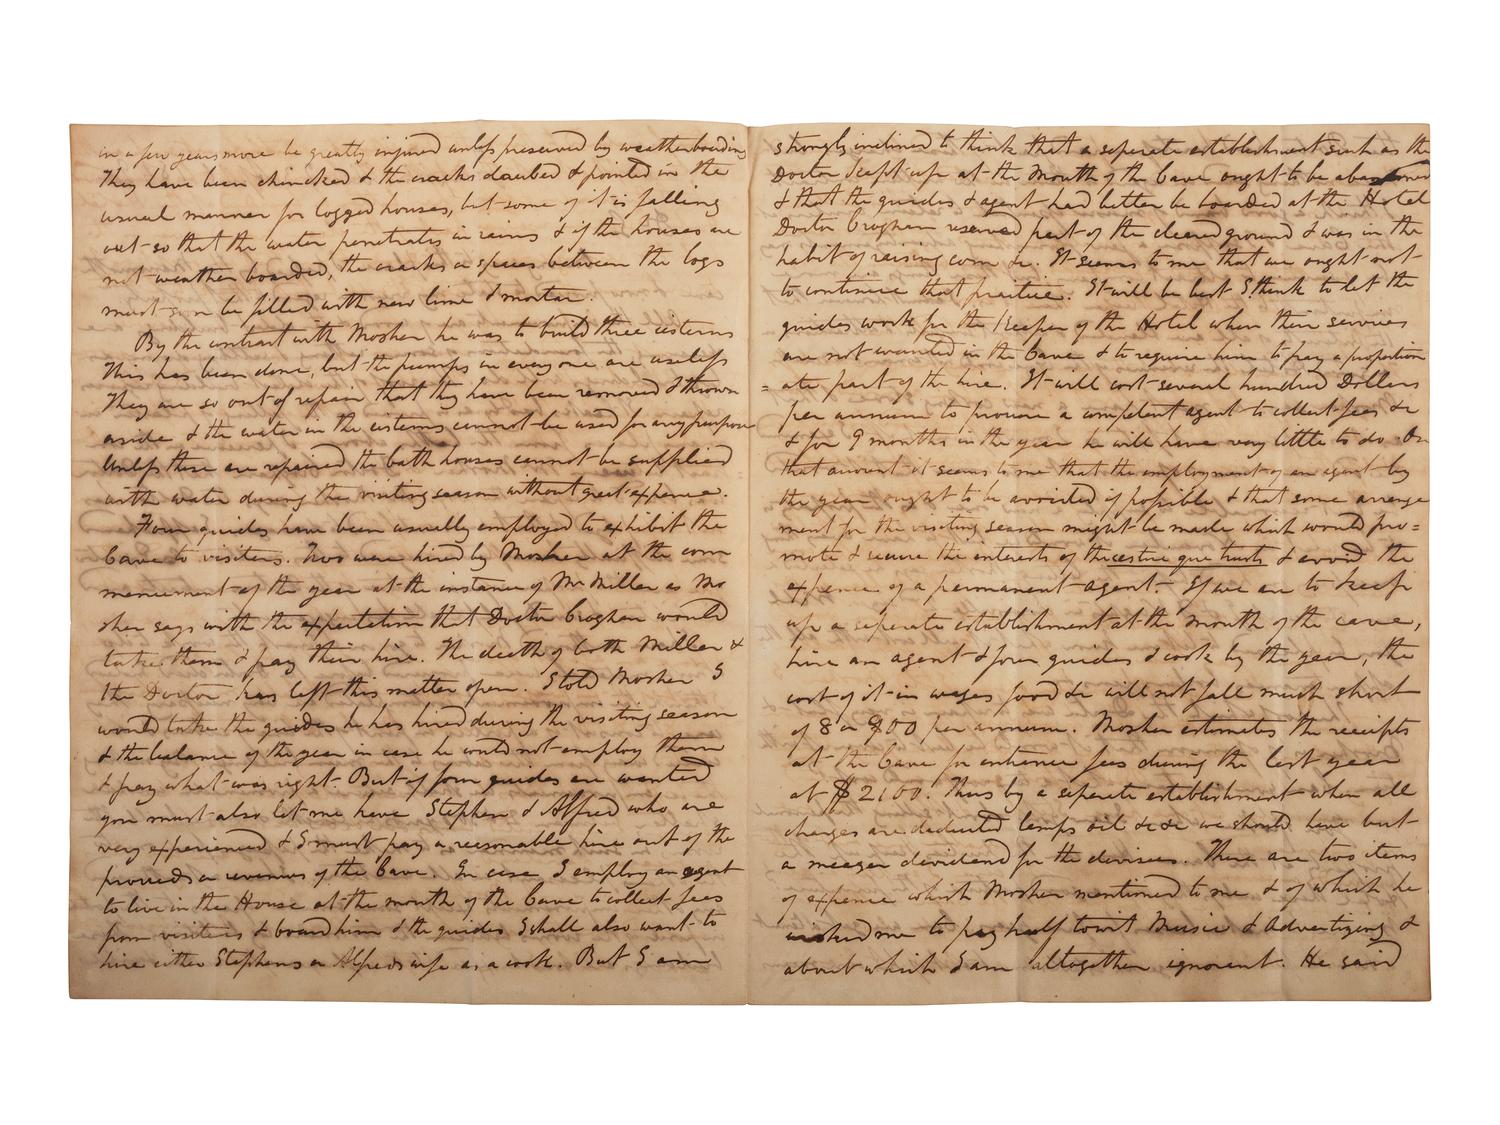 in a few years more be greatly injured unless preserved by weatherboarding
They have been chincked & the cracks daubed & pointed in the
usual manner for logged houses, but some of it is falling
out so that the water penetrates in rains & if the houses are
not weather boarded, the cracks or spaces between the logs
must soon be filled with new lime & mortar.
By the contract with Mosher he was to build three cisterns
This has been done, but the pumps in every one are useless
They are so out of repair that they have been removed & thrown
aside & the water in the cisterns cannot be used for any purpose
Unless these are repaired the bath houses cannot be supplied
with water during the visiting season without great expence.
Four guides have been usually employed to exhibit the
Cave to visiters. Two were hired by Mosher at the com
mencement of the year at the instance of Mr Miller as Mo
sher says with the expectation that Doctor Croghan would
take them & pay their hire. The death of both Miller &
the Doctor has left this matter open. I told Mosher I
would take the guides he has hired during the visiting season
& the balance of the year in case he would not employ them
& pay what was right. But if four guides are wanted
you must also let me have Stephen & Alfred who are
very experienced & I must pay a reasonable hire out of the
proceeds or revenues of the Cave. In case I employ an agent
to live in the House at the mouth of the Cave to collect fees
from visiters & board him & the guides I shall also want to
hire either Stephens or Alfreds wife as a cook. But I am
strongly inclined to think that a seperate establishment such as the
Doctor kept up at the Mouth of the Cave ought to be abandoned
& that the guides & agent had better be boarded at the Hotel
Doctor Croghan reserved part of the cleared ground & was in the
habit of raising corn &c. It seems to me that we ought not
to continue that practice. It will be best I think to let the
guides work for the Keeper of the Hotel when their services
are not wanted in the Cave & to require him to pay a proportion
= ate part of the hire. It will cost several hundred Dollars
per annum to procure a competent agent to collect fees &c
& for 9 months in the year he will have very little to do. On
that account it seems to me that the employment of an agent by
the year ought to be avoided if possible & that some arrange
ment for the visiting season might be made which would pro=
mote & secure the interests of the cestui que trusts & avoid the
expence of a permanent agent. If we are to keep
up a seperate establishment at the mouth of the cave,
hire an agent & four guides & cook by the year, the
cost of it in wages food &c will not fall much short
of 8 or 900 per annum. Mosher estimates the receipts
at the Cave for entrance fees during the last year
at $2100. Thus by a seperate establishment when all
charges are deducted lamps oil &c &c we should have but
a meager dividend for the devisees. There are two items
of expence which Mosher mentioned to me & of which he
wished me to pay half towit Music & Advertizing &
about which I am altogether ignorant. He said